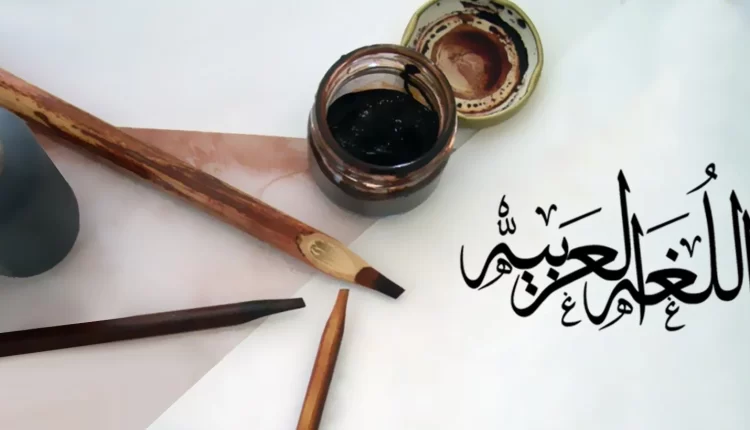 اللُّغه العربيه